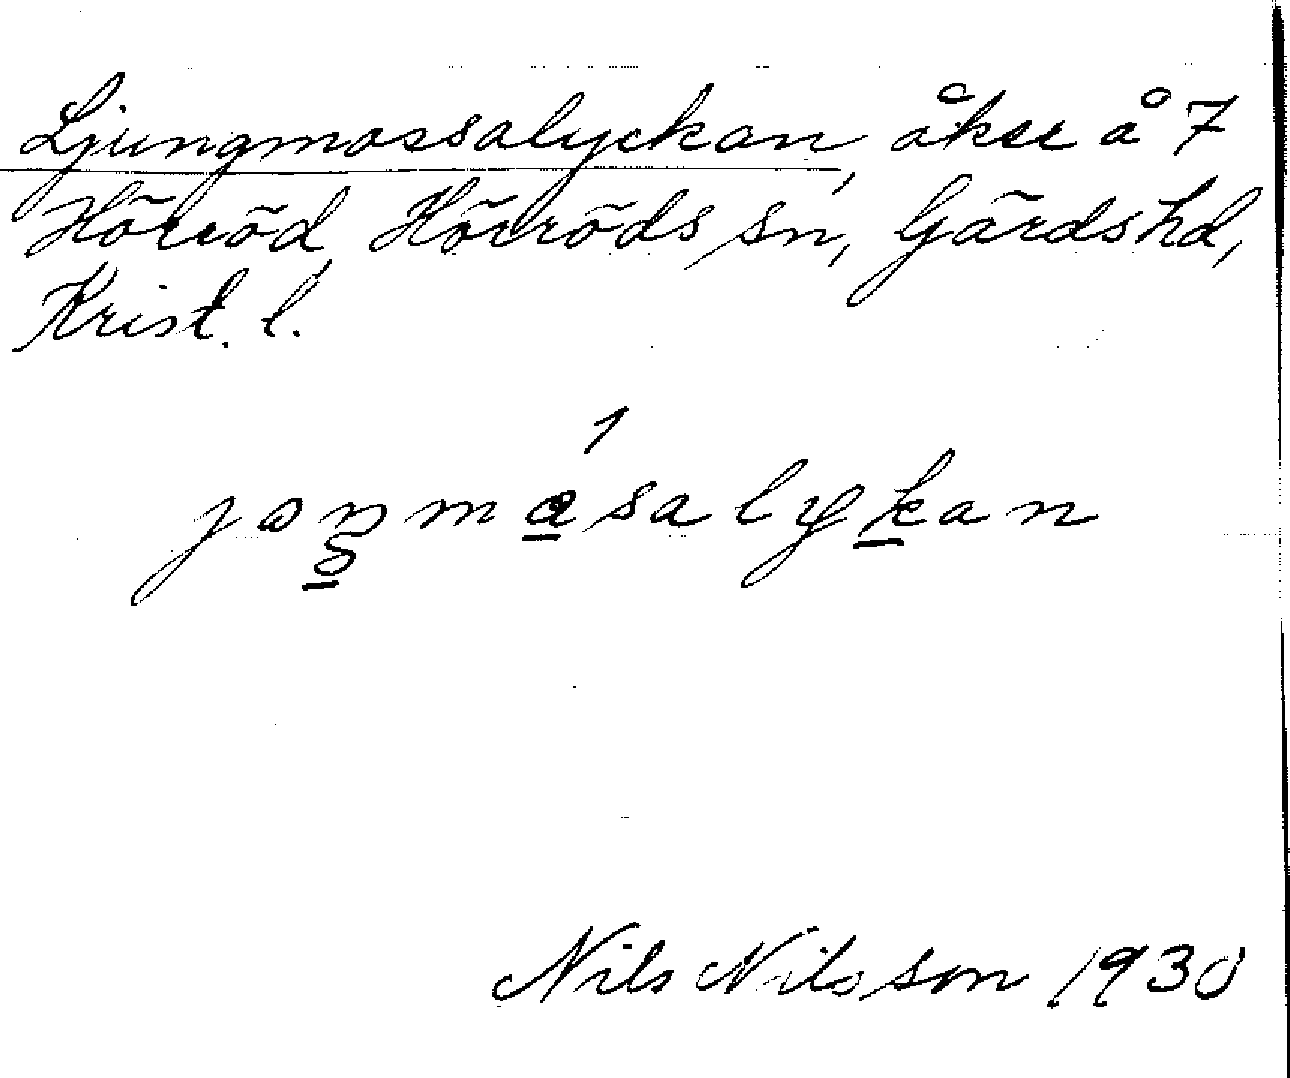 Ljungmossalyckan, åker å 7
Hörröd, Hörröds sn, Gärds hd,
Krist. l.
Nils Nilsson 1930